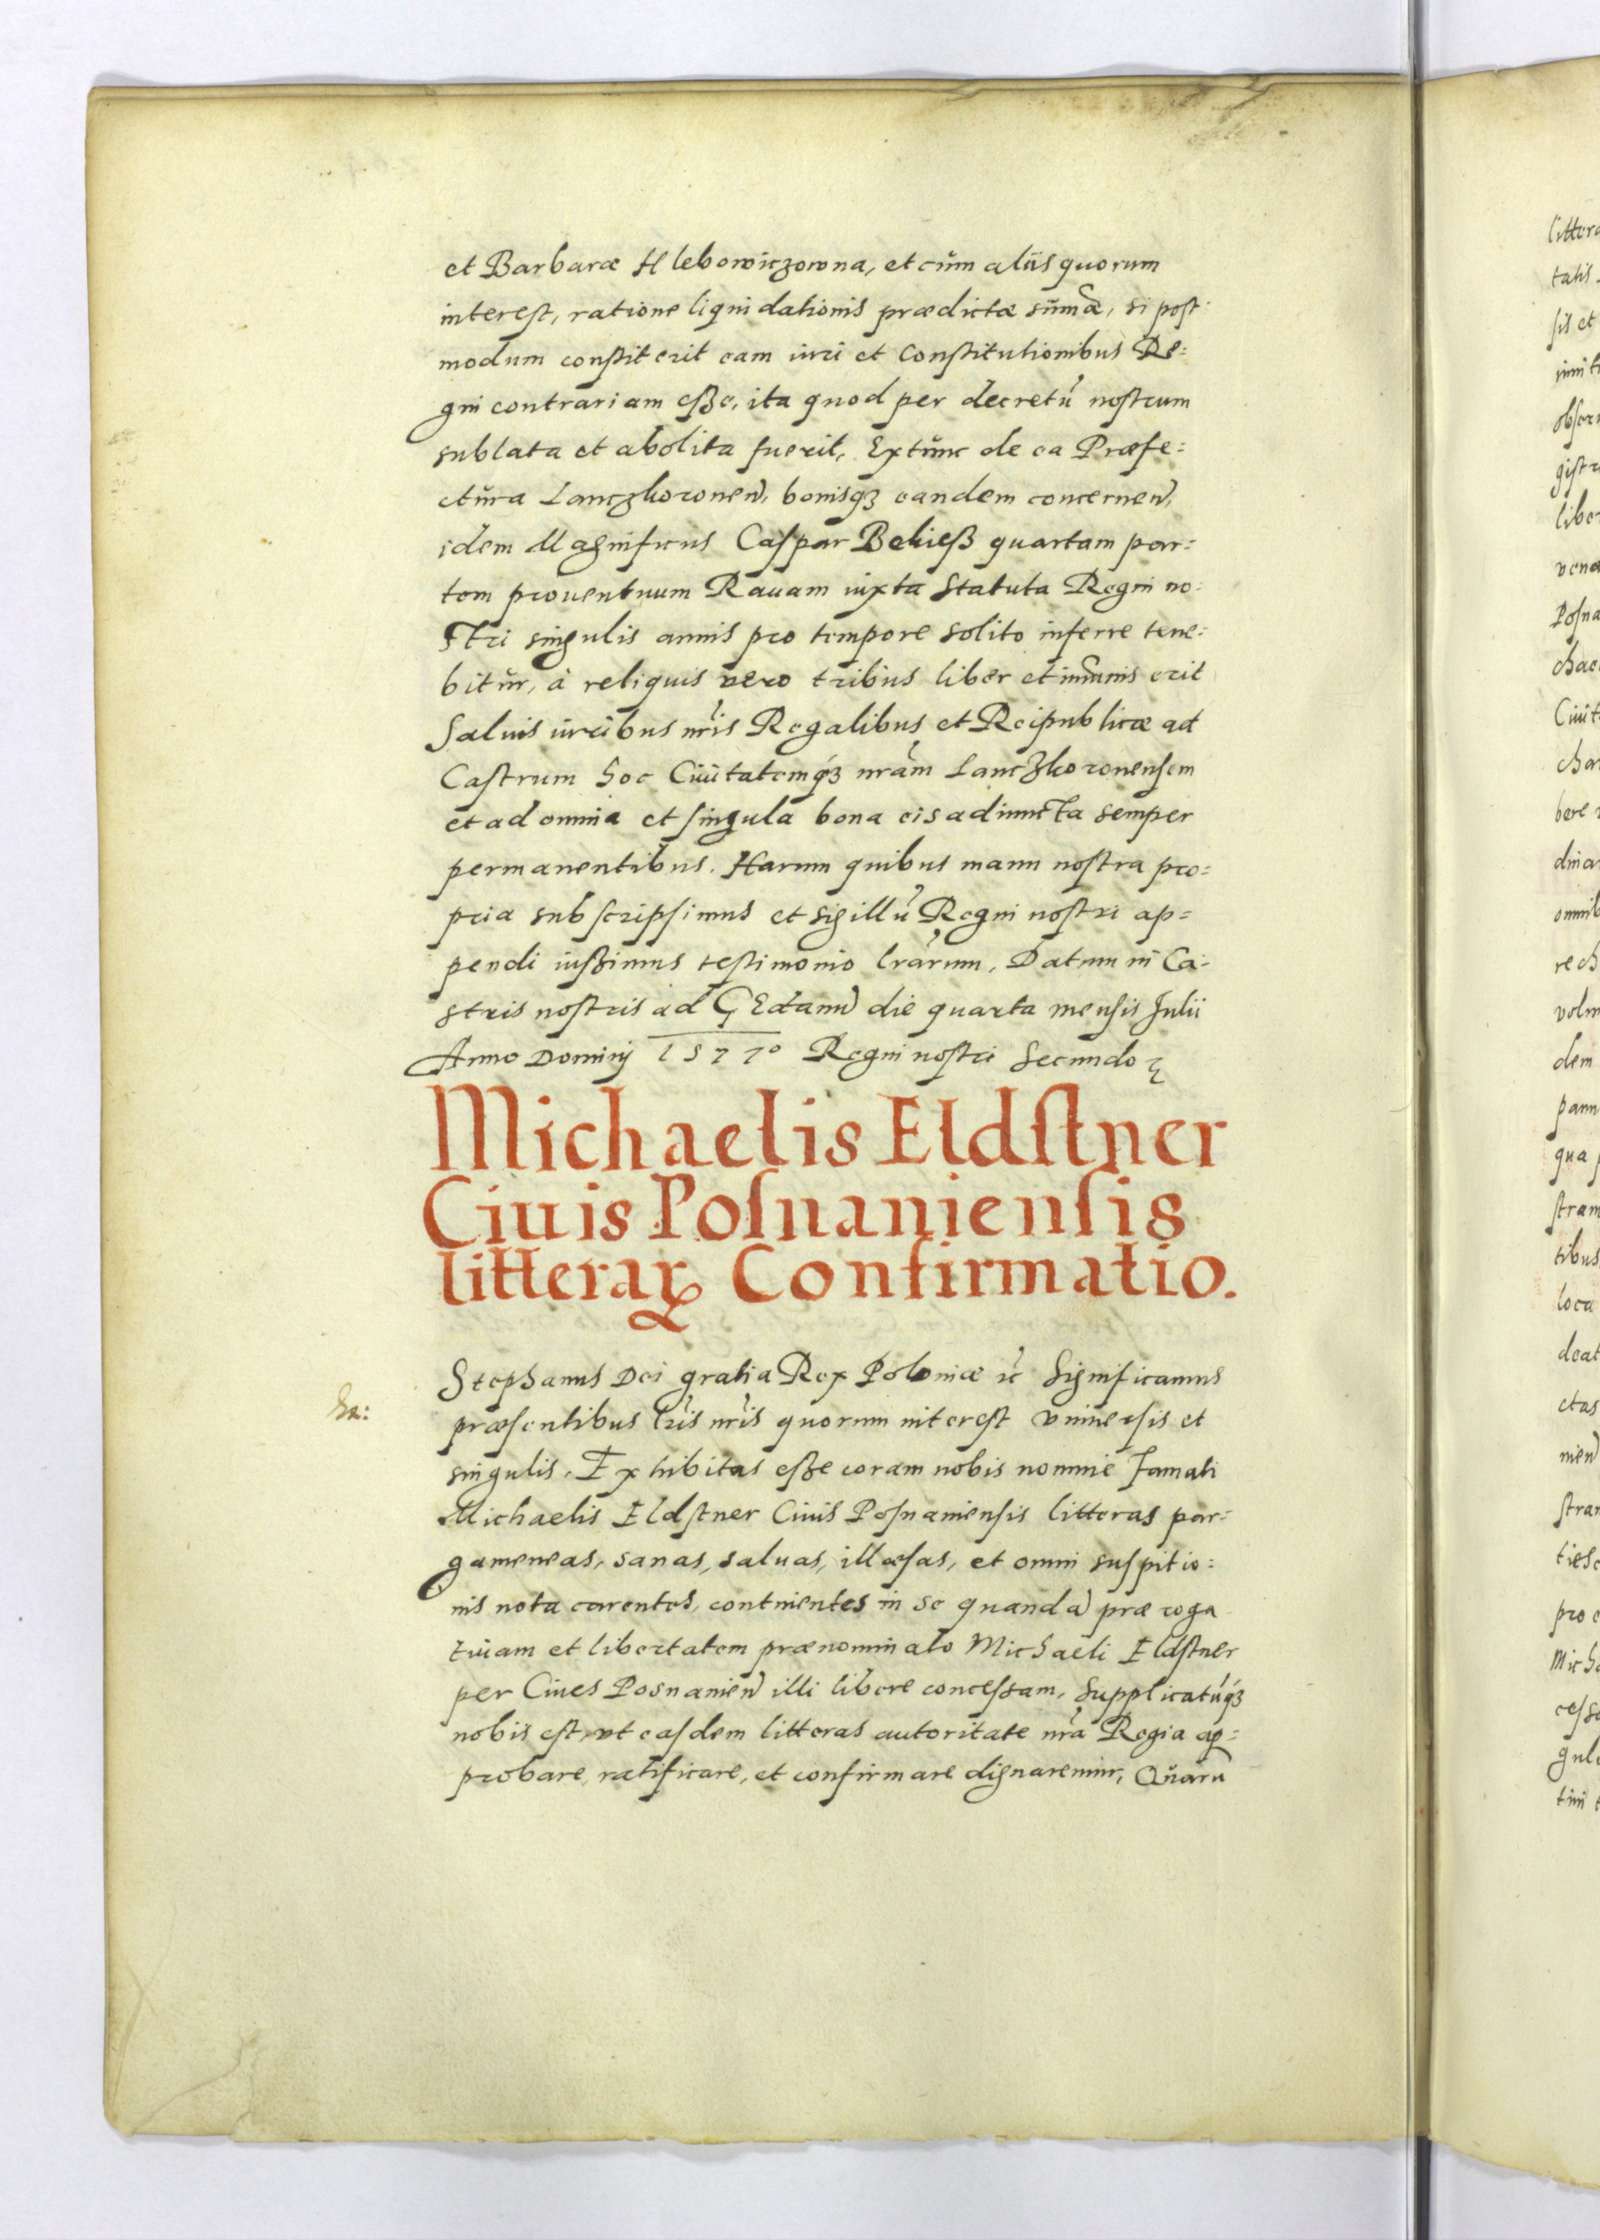 et Barbaræ Hlebowiczowna, et cum aliis quorum
interest, ratione liquidationis prædictæ sum̄æ, si post
modum constiterit eam iuri et Constitutionibus Re=
gni contrariam esse, ita quod per decretū nostrum
sublata et abolita fuerit, Extunc de ea Præfe=
ctura Lanczkoronen̄, bonisqꝫ eandem concernen̄,
idem Magnificus Caspar Bekiess quartam par=
tem prouentuum Rauam iuxta Statuta Regni no=
stri singulis annis pro tempore solito inferre tene=
bitur, à reliquis vero tribus liber et im̄unis erit
Saluis iuribus nr̄is Regalibus et Reipublicæ ad
Castrum hoc Ciuitatemqꝫ nrām Lanczkoronensem
et ad omnia et singula bona eis adiuncta semper
permanentibus. Harum quibus manu nostra pro=
pria subscripsimus et sigillū Regni nostri ap=
pendi iussimus testimonio lrārum. Datum in Ca=
stris nostris ad Gedanū die quarta mensis Julii
Anno Dominj 1577º Regni nostri Secundo
Michaelis Eldstner
Ciuis Posnaniensis
litteraꝝ Confirmatio.
Stephanus Dei gratia Rex Poloniæ ꝛc Significamus
præsentibus lr̄is nr̄is quorum interest vniuersis et
singulis. Exhibitas esse coram nobis nomine Famati
Michaelis Eldstner Ciuis Posnaniensis litteras par=
gameneas, sanas, saluas, illæsas, et omni suspitio=
nis nota carentes, continentes in se quandā præroga
tiuam et libertatem prænominato Michaeli Eldstner
per Ciues Posnanien̄ illi libere concessam, Supplicatūqꝫ
nobis est, vt easdem litteras autoritate nrā Regia ap=
probare, ratificare, et confirmare dignaremur, Quarū